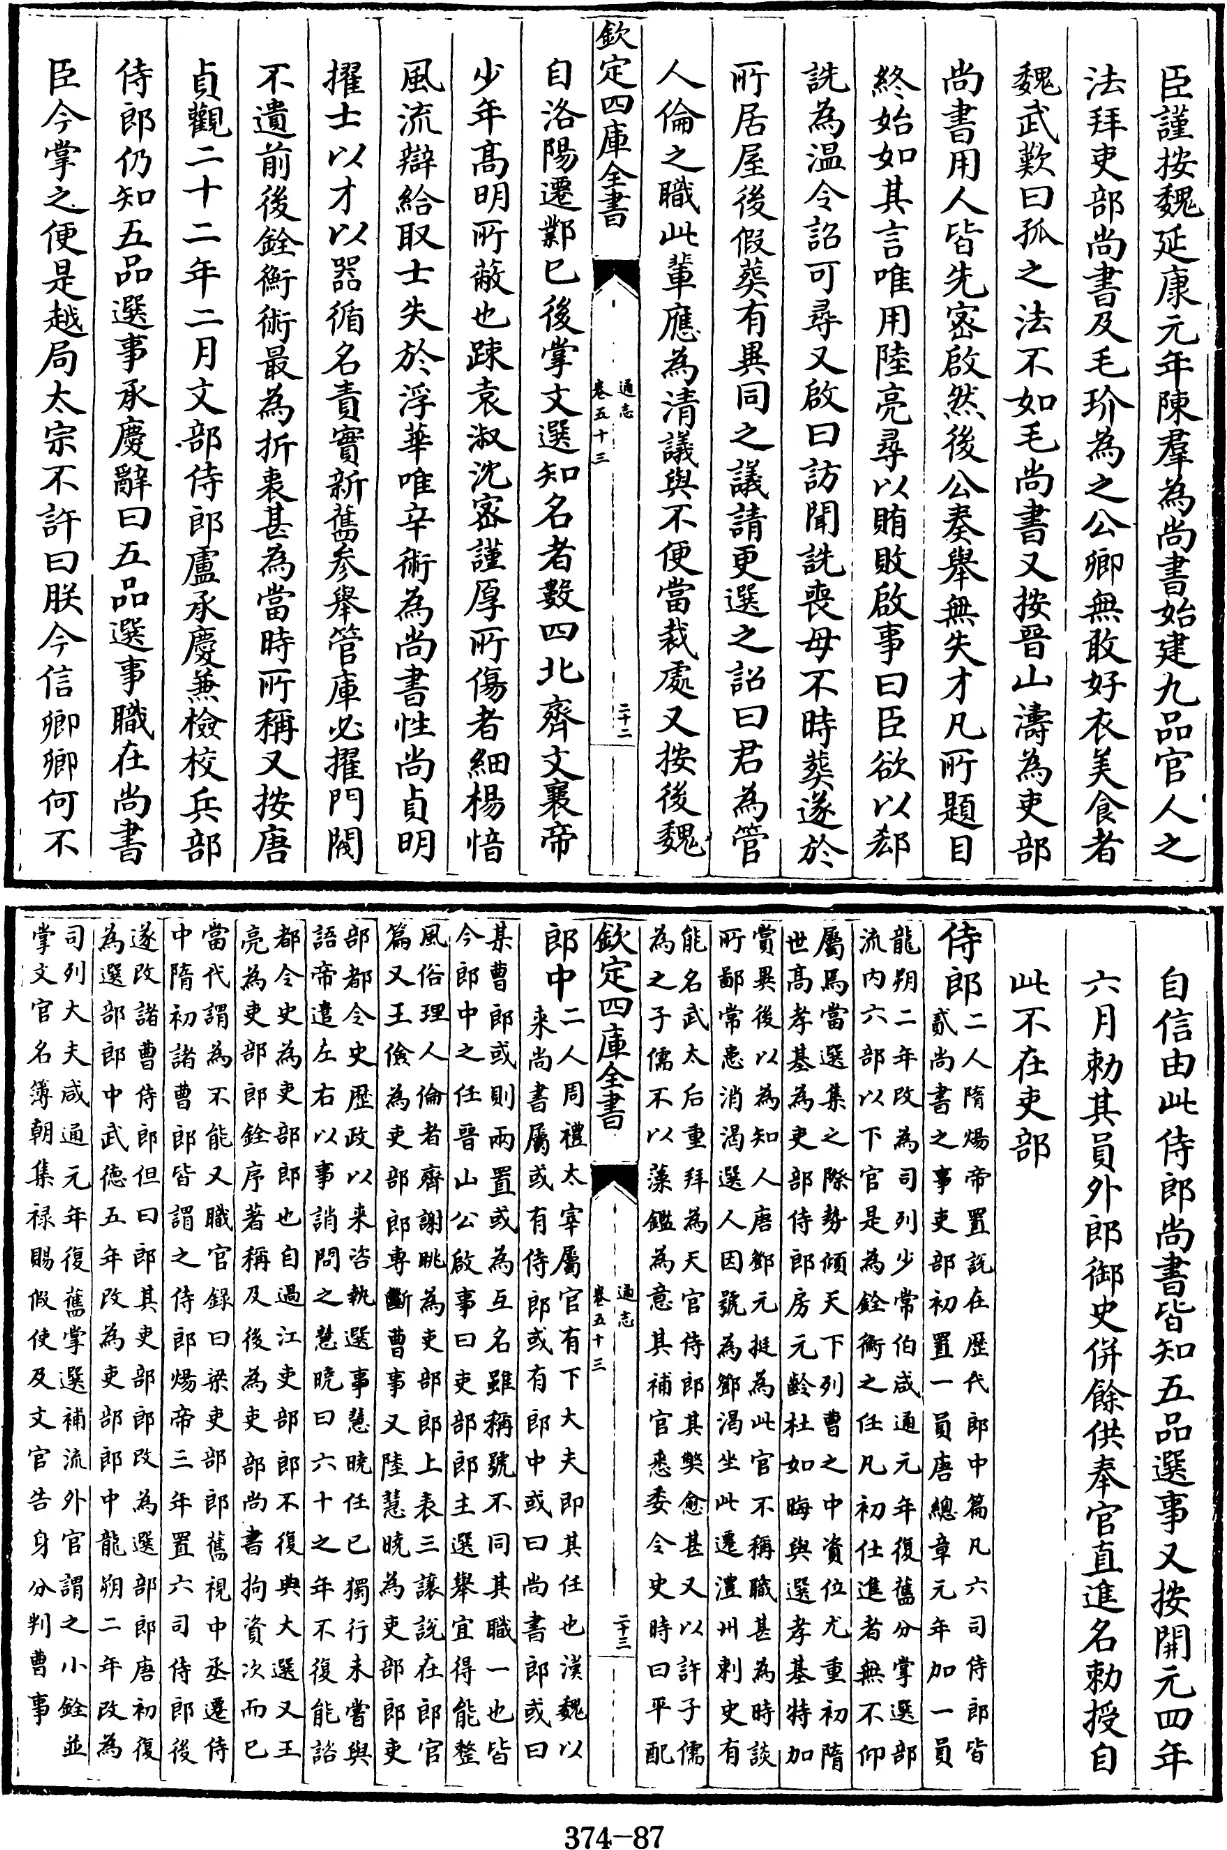 臣謹按魏延康元年陳羣為尚書始建九品官人之
法拜吏部尚書及毛玠為之公卿無敢好衣美食者
魏武歎曰孤之法不如毛尚書又按晉山濤為吏部
尚書用人皆先密啟然後公奏舉無失才凡所題目
終始如其言唯用陸亮尋以賄敗啟事曰臣欲以郄
詵為温令詔可尋又啟曰訪聞詵喪母不時葬遂於
所居屋後假葬有異同之議請更選之詔曰君為管
人倫之職此輩應為清議與不便當裁處又按後魏
欽定四庫全書
通志
卷五十三
二十二
自洛陽遷鄴已後掌文選知名者數四北齊文襄帝
少年髙明所蔽也踈袁淑沈密謹厚所傷者細楊愔
風流辯給取士失於浮華唯辛術為尚書性尚貞明
擢士以才以器循名責實新舊參舉管庫必擢門閥
不遺前後銓衡術最為折衷甚為當時所稱又按唐
貞觀二十二年二月文部侍郎盧承慶兼檢校兵部
侍郎仍知五品選事承慶辭曰五品選事職在尚書
臣今掌之便是越局太宗不許曰朕今信卿卿何不
自信由此侍郎尚書皆知五品選事又按開元四年
六月勅其員外郎御史併餘供奉官直進名勅授自
此不在吏部
侍郎
二人隋煬帝置說在歴代郎中篇凡六司侍郎皆
貳尚書之事吏部初置一員唐總章元年加一員
龍朔二年改為司列少常伯咸通元年復舊分掌選部
流内六部以下官是為銓衡之任凡初仕進者無不仰
屬焉當選集之際勢傾天下列曹之中資位尤重初隋
世髙孝基為吏部侍郎房元齡杜如晦與選孝基特加
賞異後以為知人唐鄧元挺為此官不稱職甚為時談
所鄙常患消渴選人因號為鄧渴坐此遷澧州刺史有
能名武太后重拜為天官侍郎其獘愈甚又以許子儒
為之子儒不以藻鑑為意其補官悉委令史時曰平配
欽定四庫全書
通志
卷五十三
二十三
郎中
二人周禮太宰屬官有下大夫即其任也漢魏以
来尚書屬或有侍郎或有郎中或曰尚書郎或曰
某曹郎或則兩置或為互名雖稱號不同其職一也皆
今郎中之任晉山公啟事曰吏部郎主選舉宜得能整
風俗理人倫者齊謝眺為吏部郎上表三讓說在郎官
篇又王儉為吏部郎專斷曹事又陸慧曉為吏部郎吏
部都令史歴政以来咨執選事慧曉任已獨行未嘗與
語帝遣左右以事誚問之慧曉曰六十之年不復能諮
都令史為吏部郎也自過江吏部郎不復典大選又王
亮為吏部郎銓序著稱及後為吏部尚書拘資次而已
當代謂為不能又職官録曰梁吏部郎舊視中丞遷侍
中隋初諸曹郎皆謂之侍郎煬帝三年置六司侍郎後
遂改諸曹侍郎但曰郎其吏部郎改為選部郎唐初復
為選部郎中武徳五年改為吏部郎中龍朔二年改為
司列大夫咸通元年復舊掌選補流外官謂之小銓並
掌文官名簿朝集禄賜假使及文官告身分判曹事
374-87